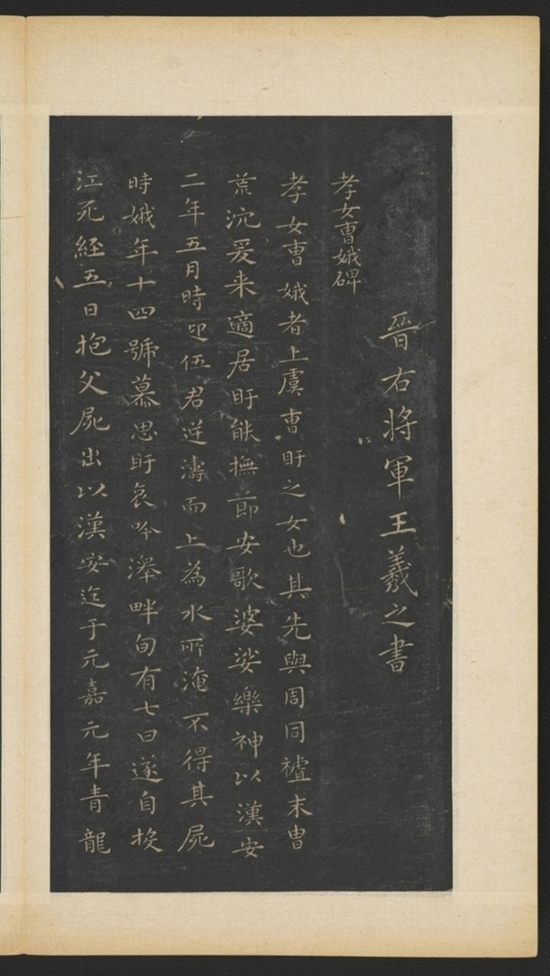 晉右將軍王羲之書
孝女曹娥碑
孝女曹娥者上虞曹盱之女也其先與周同祖末胄
荒沈爰来適居盱能撫節安歌婆娑樂神以漢安
二年五月時迎伍君逆濤而上為水所淹不得其屍
時娥年十四號慕思盱哀吟澤畔旬有七日遂自投
江死經五日抱父屍出以漢安迄于元嘉元年青龍